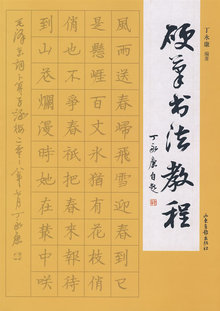 丁永康 编著
硬筆书法教程
丁永康自题
風雨送春歸飛雪迎春到已
是懸崖百丈冰猶有花枝俏
俏也不爭春祇把春來報待
到山花爛漫時她在叢中咲
毛泽东词卜算子咏梅
丁永康